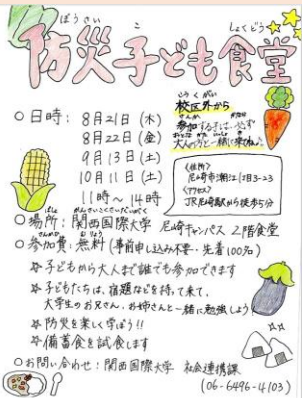 ぼうさい こ しょくどう
防災子ども食堂
○日時：8月21日（木）
8月22日（金）
9月13日（土）
10月11日（土）
11時〜14時
こうくがい
校区外から
さんか
参加する子は
大人の方と一緒に
〈住所〉
尼崎市潮江1丁目3-23
〈アクセス〉
JR尼崎駅から徒歩5分
○場所：関西国際大学 尼崎キャンパス 2階食堂
○参加費：無料（事前申し込み不要・先着100名）
☆子どもから大人まで誰でも参加できます
☆子どもたちは、宿題などを持って来て、
大学生のお兄さん、お姉さんと一緒に勉強しよう
☆防災を楽しく学ぼう!!
☆備蓄食を試食します
○お問い合わせ：関西国際大学 社会連携課
(06-6496-4103)